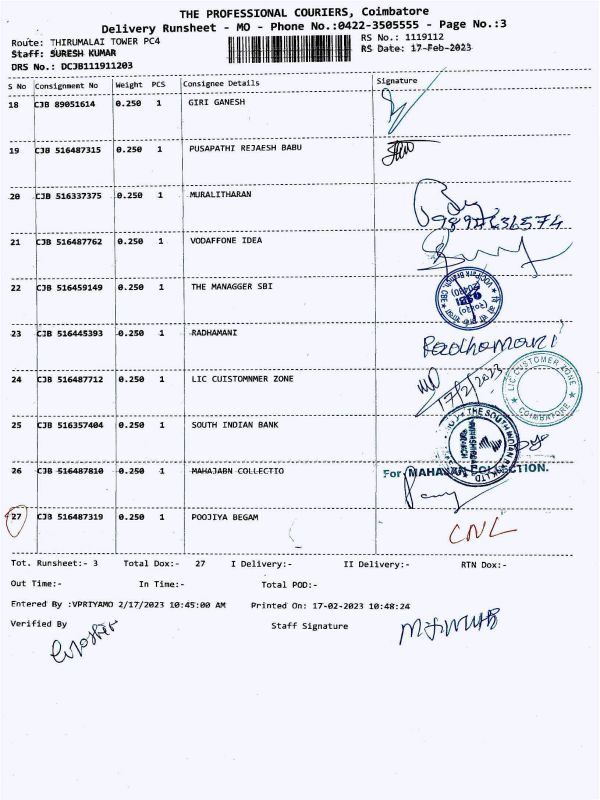 THE PROFESSIONAL COURIERS, Coimbatore
Delivery Runsheet - MO - Phone No.:0422-3505555 - Page No.:3
Route: THIRUMALAI TOWER PC4
RS No.: 1119112
Staff: SURESH KUMAR
RS Date: 17-Feb-2023
DRS No.: DCJB111911203
S No Consignment No Weight PCS Consignee Details Signature
18 CJB 89051614 0.250 1 GIRI GANESH
19 CJB 516487315 0.250 1 PUSAPATHI REJAESH BABU
20 CJB 516337375 0.250 1 MURALITHARAN
21 CJB 516487762 0.250 1 VODAFFONE IDEA
22 CJB 516459149 0.250 1 THE MANAGGER SBI
23 CJB 516445393 0.250 1 RADHAMANI
Radhamani
24 CJB 516487712 0.250 1 LIC CUISTOMNMER ZONE
17/2/2023
LIC CUSTOMER ZONE
COIMBATORE
25 CJB 516357404 0.250 1 SOUTH INDIAN BANK
26 CJB 516487810 0.250 1 MAHAJABN COLLECTIO
For MAHAJAN COLLECTION.
27 CJB 516487319 0.250 1 POOJIYA BEGAM
CNL
Tot. Runsheet:- 3 Total Dox:- 27 I Delivery:- II Delivery:- RTN Dox:-
Out Time:- In Time:- Total POD:-
Entered By :VPRIYAMO 2/17/2023 10:45:00 AM Printed On: 17-02-2023 10:48:24
Verified By Staff Signature